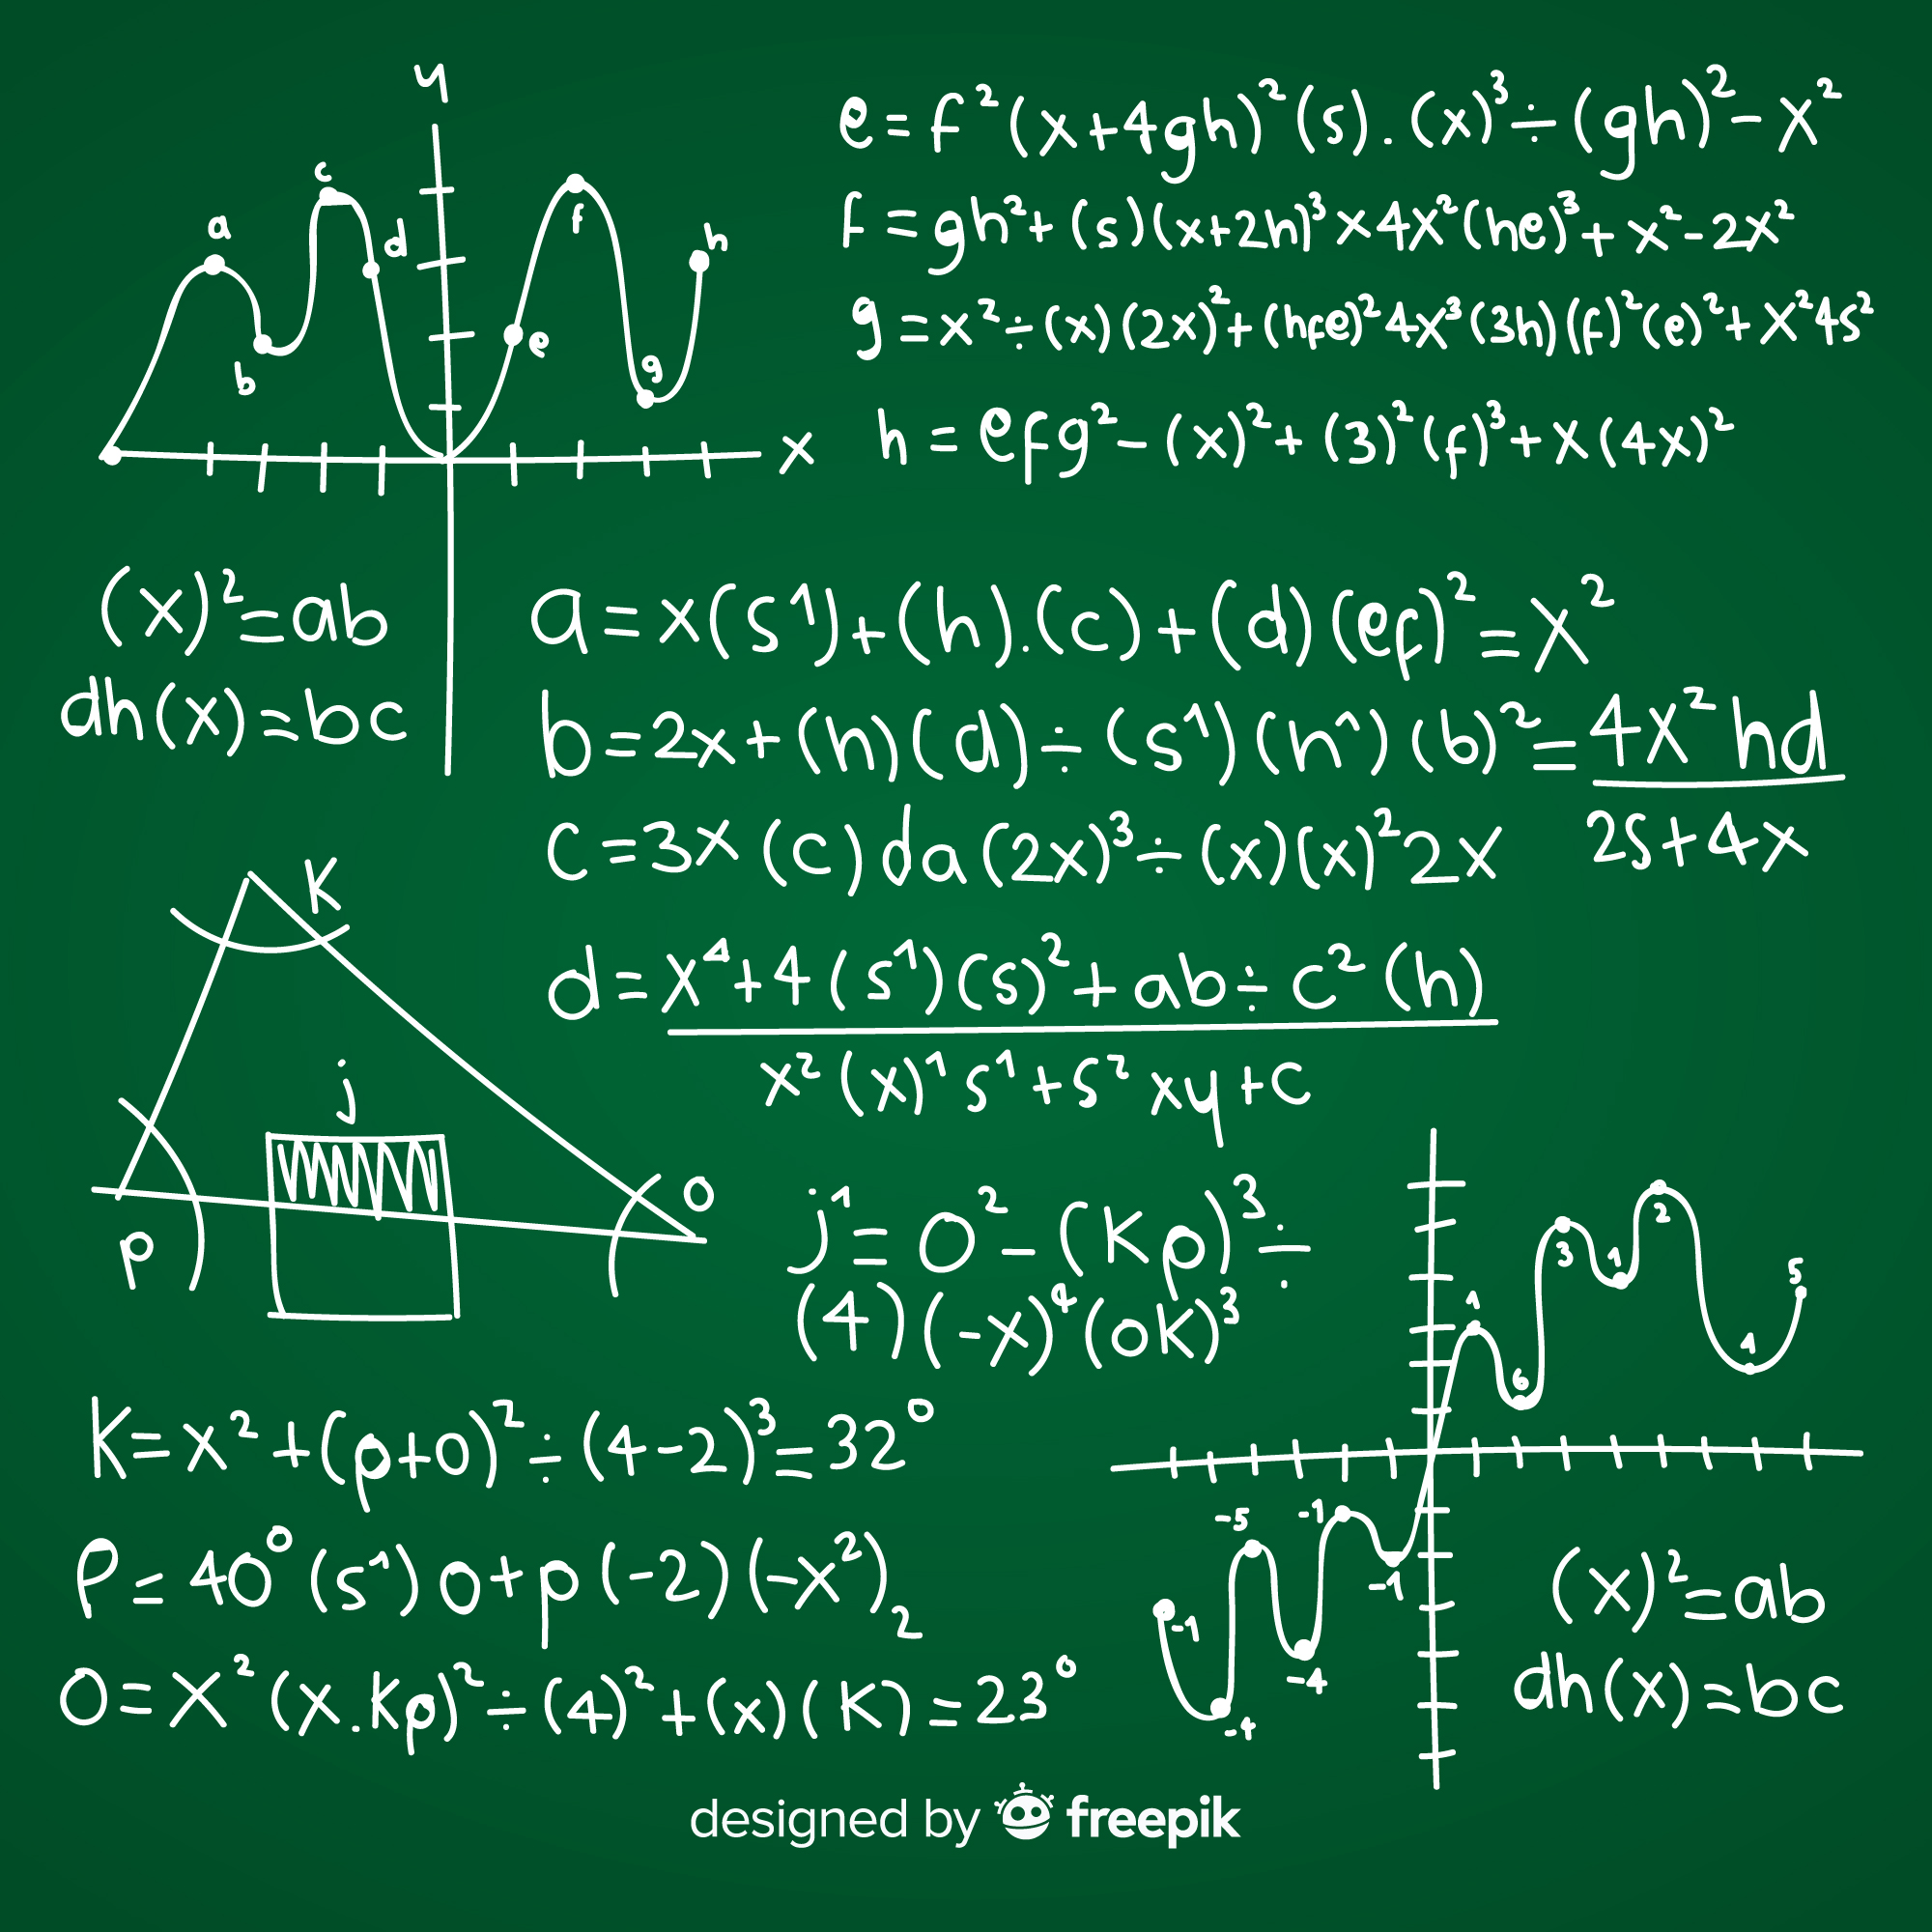 y
c
a
d
b
f
e
g
h
x
e=f²(x+4gh)²(s).(x)³÷(gh)²-x²
f=gh²+(s)(x+2h)³×4x²(he)³+x²-2x²
g=x²÷(x)(2x)²+(hfe)²4x³(3h)(f)²(e)²+x²4s²
h=efg²-(x)²+(3)²(f)³+x(4x)²
(x)²=ab
dh(x)=bc
a=x(s¹)+(h).(c)+(d)(ef)²=x²
b=2x+(h)(d)÷(s¹)(h^)(b)²=4x²hd
2s+4x
c=3x(c)da(2x)³÷(x)(x)²2x
d=x⁴+4(s¹)(s)²+ab÷c²(h)
x²(x)¹s¹+s²xy+c
K
j
p
o
j¹=o²-(Kp)³÷
(4)(-x)⁴(oK)³
K=x²+(p+o)²÷(4-2)³=32°
P=40°(s¹)o+p(-2)(-x²)₂
o=x²(x.Kp)²÷(4)²+(x)(K)=23°
1
6
3
1
2
1
5
-5
-1
-1
-1
-4
(x)²=ab
dh(x)=bc
designed by freepik